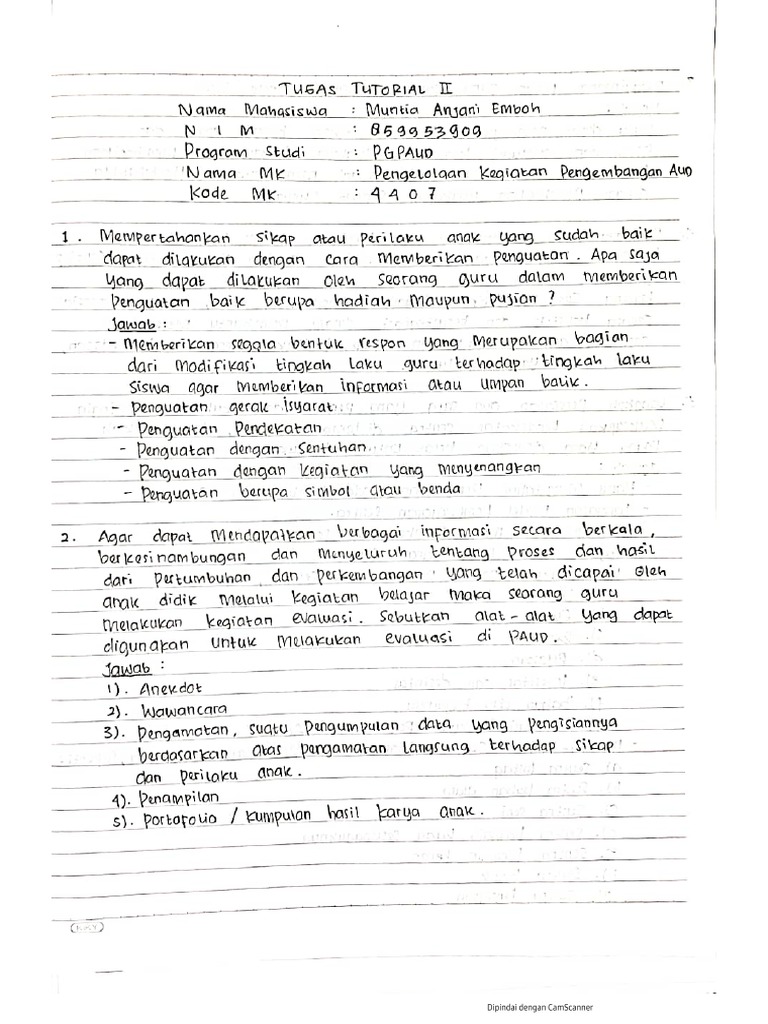 TUGAS TUTORIAL II
Nama Mahasiswa : Muntia Anjani Emboh
N I M : 859953909
Program Studi : PGPAUD
Nama MK : Pengelolaan Kegiatan Pengembangan AUD
Kode MK : 4407
1. Mempertahankan sikap atau perilaku anak yang sudah baik
dapat dilakukan dengan cara Memberikan Penguatan. Apa saja
yang dapat dilakukan oleh seorang guru dalam memberikan
Penguatan baik berupa hadiah maupun pujian ?
Jawab :
- Memberikan segala bentuk respon yang Merupakan bagian
dari Modifikasi tingkah laku guru terhadap tingkah laku
Siswa agar memberikan informasi atau umpan balik.
- Penguatan gerak isyarat
- Penguatan Pendekatan
- Penguatan dengan Sentuhan
- Penguatan dengan kegiatan yang menyenangkan
- Penguatan berupa simbol atau benda
2. Agar dapat Mendapatkan berbagai informasi secara berkala,
berkesinambungan dan Menyeluruh tentang Proses dan hasil
dari Pertumbuhan dan perkembangan yang telah dicapai oleh
anak didik Melalui kegiatan belajar Maka seorang guru
Melakukan kegiatan evaluasi. Sebutkan alat-alat yang dapat
digunakan untuk Melakukan evaluasi di PAUD.
Jawab :
1). Anekdot
2). Wawancara
3). Pengamatan, suatu Pengumpulan data yang Pengisiannya
berdasarkan atas pengamatan langsung terhadap sikap
dan perilaku anak.
4). Penampilan
5). Portofolio / Kumpulan hasil karya anak.
KKY
Dipindai dengan CamScanner